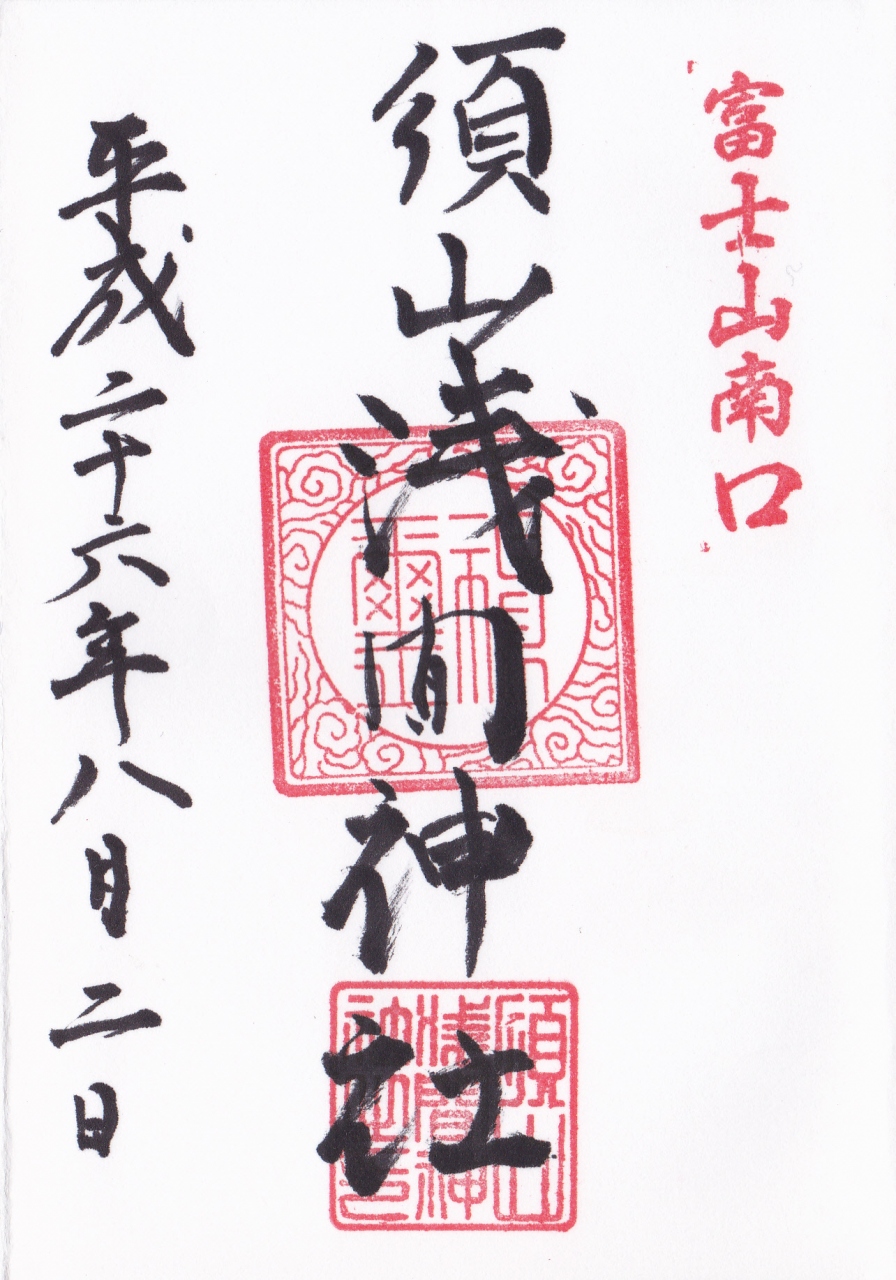 富士山南口
須山浅間神社
平成二十六年八月二日
須山浅間神社印